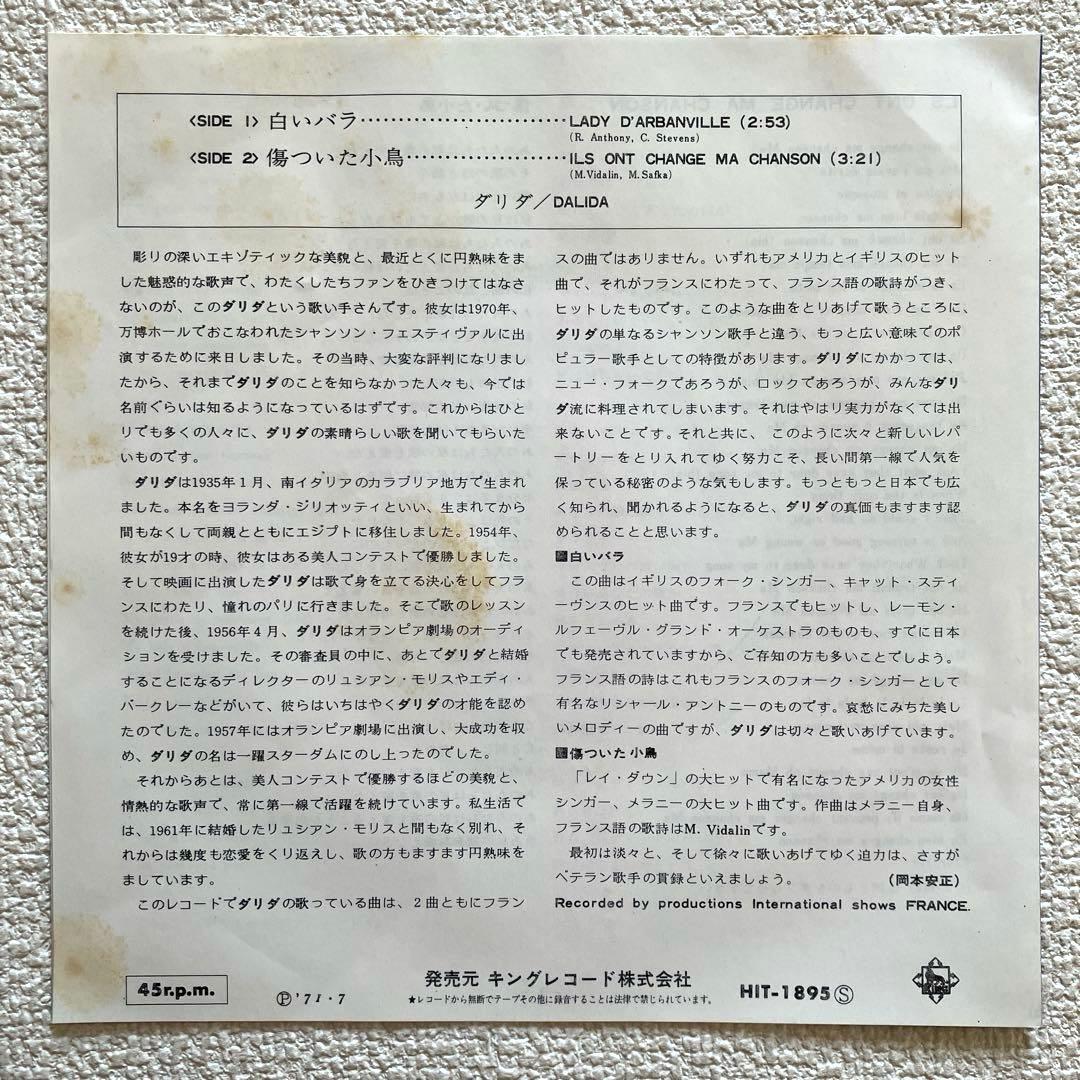 〈SIDE 1〉白いバラ・・・・・・・・・・・・・・・・・・・・・・・・・・LADY D'ARBANVILLE (2:53)
(R. Anthony, C. Stevens)
〈SIDE 2〉傷ついた小鳥・・・・・・・・・・・・・・・・・・・・ILS ONT CHANGE MA CHANSON (3:21)
(M.Vidalin, M.Safka)
ダリダ／DALIDA
彫りの深いエキゾティックな美貌と、最近とくに円熟味をま
した魅惑的な歌声で、わたくしたちファンをひきつけてはなさ
ないのが、このダリダという歌い手さんです。彼女は1970年、
万博ホールでおこなわれたシャンソン・フェスティヴァルに出
演するために来日しました。その当時、大変な評判になりまし
たから、それまでダリダのことを知らなかった人々も、今では
名前ぐらいは知るようになっているはずです。これからはひと
りでも多くの人々に、ダリダの素晴らしい歌を聞いてもらいた
いものです。
ダリダは1935年１月、南イタリアのカラブリア地方で生まれ
ました。本名をヨランダ・ジリオッティといい、生まれてから
間もなくして両親とともにエジプトに移住しました。1954年、
彼女が19才の時、彼女はある美人コンテストで優勝しました。
そして映画に出演したダリダは歌で身を立てる決心をしてフラ
ンスにわたり、憧れのパリに行きました。そこで歌のレッスン
を続けた後、1956年４月、ダリダはオランピア劇場のオーディ
ションを受けました。その審査員の中に、あとでダリダと結婚
することになるディレクターのリュシアン・モリスやエディ・
バークレーなどがいて、彼らはいちはやくダリダの才能を認め
たのでした。1957年にはオランピア劇場に出演し、大成功を収
め、ダリダの名は一躍スターダムにのし上ったのでした。
それからあとは、美人コンテストで優勝するほどの美貌と、
情熱的な歌声で、常に第一線で活躍を続けています。私生活で
は、1961年に結婚したリュシアン・モリスと間もなく別れ、そ
れからは幾度も恋愛をくり返えし、歌の方もますます円熟味を
ましています。
このレコードでダリダの歌っている曲は、２曲ともにフラン
スの曲ではありません。いずれもアメリカとイギリスのヒット
曲で、それがフランスにわたって、フランス語の歌詩がつき、
ヒットしたものです。このような曲をとりあげて歌うところに、
ダリダの単なるシャンソン歌手と違う、もっと広い意味でのポ
ピュラー歌手としての特徴があります。ダリダにかかっては、
ニュー・フォークであろうが、ロックであろうが、みんなダリ
ダ流に料理されてしまいます。それはやはり実力がなくては出
来ないことです。それと共に、このように次々と新しいレパ
ートリーをとり入れてゆく努力こそ、長い間第一線で人気を
保っている秘密のような気もします。もっともっと日本でも広
く知られ、聞かれるようになると、ダリダの真価もますます認
められることと思います。
白いバラ
この曲はイギリスのフォーク・シンガー、キャット・スティ
ーヴンスのヒット曲です。フランスでもヒットし、レーモン・
ルフェーヴル・グランド・オーケストラのものも、すでに日本
でも発売されていますから、ご存知の方も多いことでしよう。
フランス語の詩はこれもフランスのフォーク・シンガーとして
有名なリシャール・アントニーのものです。哀愁にみちた美し
いメロディーの曲ですが、ダリダは切々と歌いあげています。
傷ついた小鳥
「レイ・ダウン」の大ヒットで有名になったアメリカの女性
シンガー、メラニーの大ヒット曲です。作曲はメラニー自身、
フランス語の歌詩はM. Vidalinです。
最初は淡々と、そして徐々に歌いあげてゆく迫力は、さすが
ベテラン歌手の貫録といえましょう。 （岡本安正）
Recorded by productions International shows FRANCE.
発売元 キングレコード株式会社
45r.p.m.
Ⓟ '71・7
★レコードから無断でテープその他に録音することは法律で禁じられています。
HIT-1895Ⓢ
KING